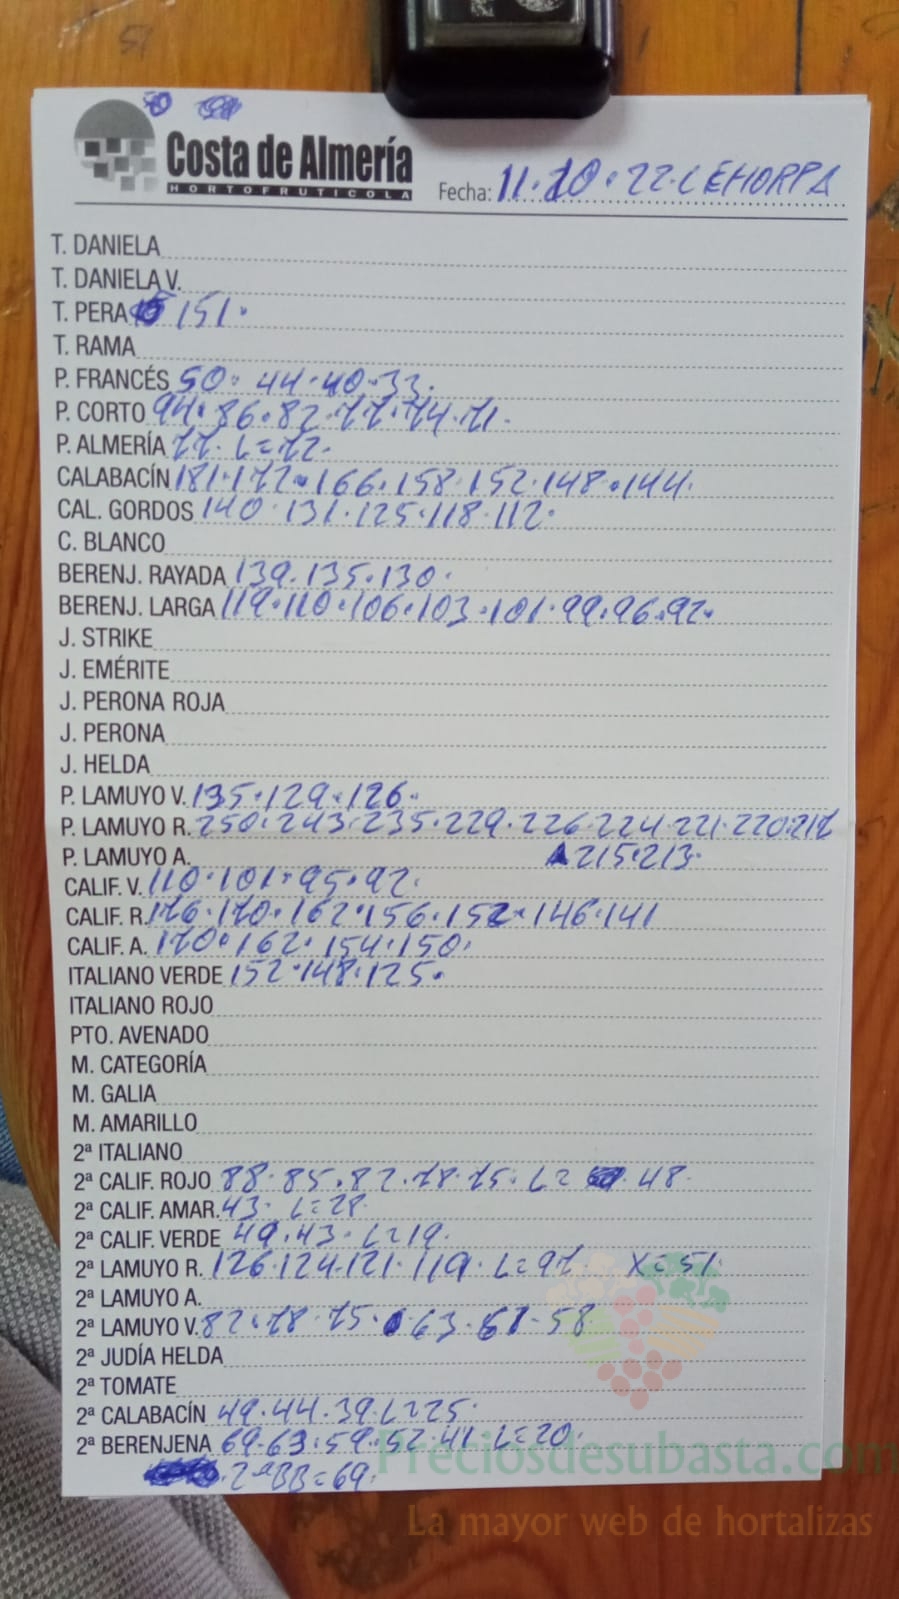 Costa de Almería
HORTOFRUTICOLA
Fecha: 11·10·22·CEHORPA
T. DANIELA
T. DANIELA V.
T. PERA 151·
T. RAMA
P. FRANCÉS 50· 44·40·33·
P. CORTO 94·86·82·77·74·71·
P. ALMERÍA 77· L=72·
CALABACÍN 181·172·166·158·152·148·144·
CAL. GORDOS 140·131·125·118·112·
C. BLANCO
BERENJ. RAYADA 139·135·130·
BERENJ. LARGA 119·110·106·103·101·99·96·92·
J. STRIKE
J. EMÉRITE
J. PERONA ROJA
J. PERONA
J. HELDA
P. LAMUYO V. 135·129·126·
P. LAMUYO R. 250·243·235·229·226·224·221·220·217
P. LAMUYO A. 215·213·
CALIF. V. 110·101·95·92·
CALIF. R. 176·170·162·156·152·146·141
CALIF. A. 170·162·154·150·
ITALIANO VERDE 152·148·125·
ITALIANO ROJO
PTO. AVENADO
M. CATEGORÍA
M. GALIA
M. AMARILLO
2ª ITALIANO
2ª CALIF. ROJO 88·85·82·78·75· L= 48·
2ª CALIF. AMAR. 43· L=28·
2ª CALIF. VERDE 49·43· L=19·
2ª LAMUYO R. 126·124·121·119· L=97 X=51·
2ª LAMUYO A.
2ª LAMUYO V. 82·78·75·63·61·58
2ª JUDÍA HELDA
2ª TOMATE
2ª CALABACÍN 49·44·39·L=25·
2ª BERENJENA 69·63·59·52·41·L=20·
2ªBB=69·
Preciosdesubasta.com
La mayor web de hortalizas